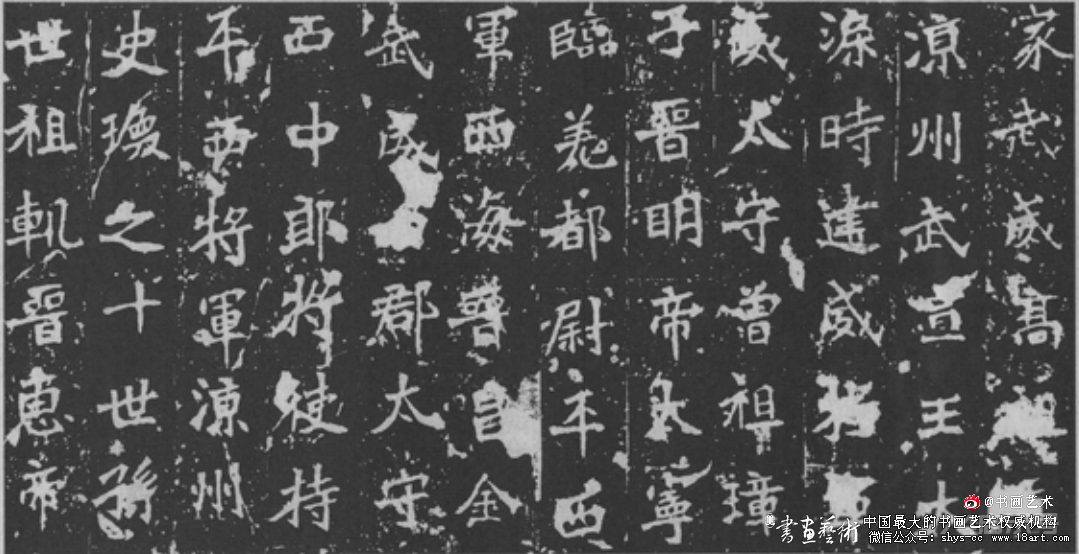 家武威高祖鍾
涼州武宣王大
渠時建威將軍
威太守曾祖璋
子晉明帝太寧
臨羌都尉平西
軍西海晉昌金
武威郡太守
西中郎將使持
平西將軍涼州
史瑍之十世孫
世祖軌晉惠帝
@书画艺术
書畫藝術 中国最大的书画艺术权威机构
微信公众号: shys-cc www.18art.com